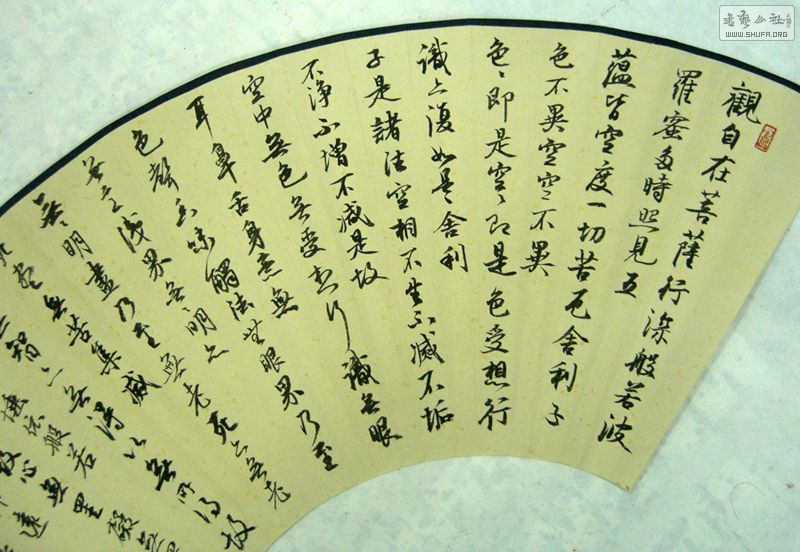 觀自在菩薩行深般若波
羅蜜多時照見五
蘊皆空度一切苦厄舍利子
色不異空空不異
色、即是空、即是色受想行
識亦復如是舍利
子是諸法空相不生不滅不垢
不淨不增不減是故
空中無色無受想行識無眼
耳鼻舌身意無
色聲香味觸法無眼界乃至
無意識界無明亦
無、明盡乃至無老死亦無老
死盡無苦集滅
智亦無得以無所得故
依般若
故心無罣礙
遠
書藝公社
WWW.SHUFA.ORG